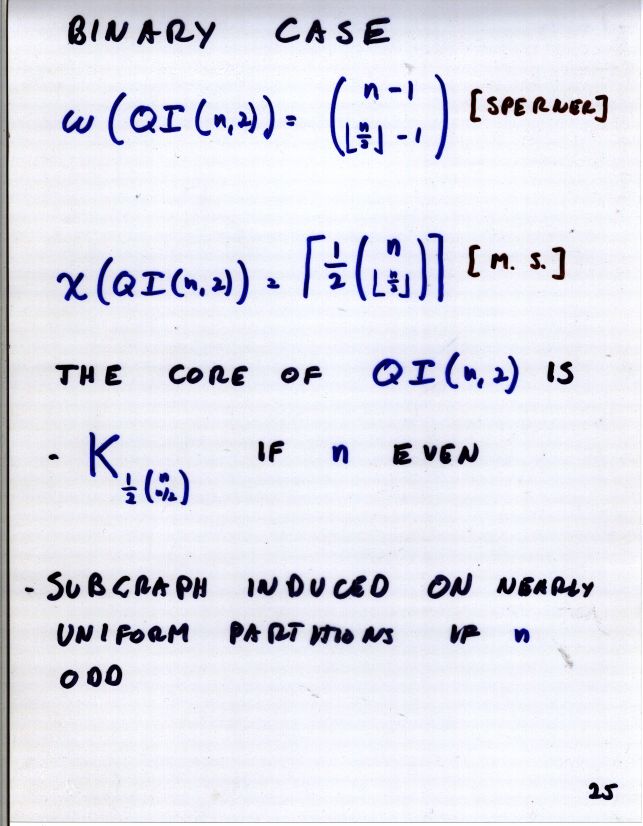 BINARY CASE
ω(QI(n,2)) = (n-1 ⌊n/2⌋-1) [SPERNER]
χ(QI(n,2)) = ⌈1/2 (n ⌊n/2⌋)⌉ [M. S.]
THE CORE OF QI(n,2) IS
- K 1/2 (n n/2) IF n EVEN
- SUBGRAPH INDUCED ON NEARLY
UNIFORM PARTITIONS IF n
ODD
25